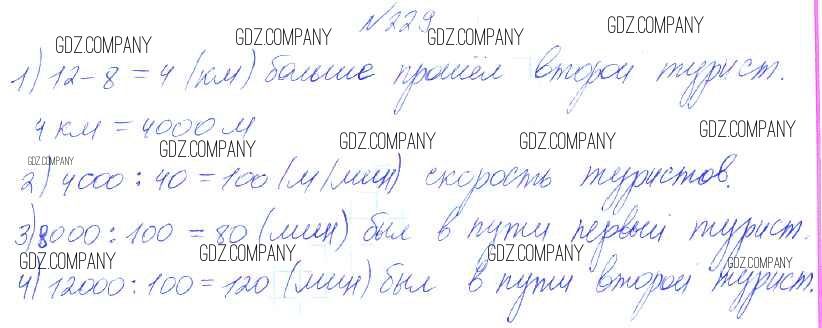 №229
1) 12-8=4 (км) больше прошёл второй турист.
4 км = 4000 м
2) 4000:40=100 (м/мин) скорость туристов.
3) 8000:100=80 (мин) был в пути первый турист.
4) 12000:100=120 (мин) был в пути второй турист.
GDZ.COMPANY
GDZ.COMPANY
GDZ.COMPANY
GDZ.COMPANY
GDZ.COMPANY
GDZ.COMPANY
GDZ.COMPANY
GDZ.COMPANY
GDZ.COMPANY
GDZ.COMPANY
GDZ.COMPANY
GDZ.COMPANY
GDZ.COMPANY